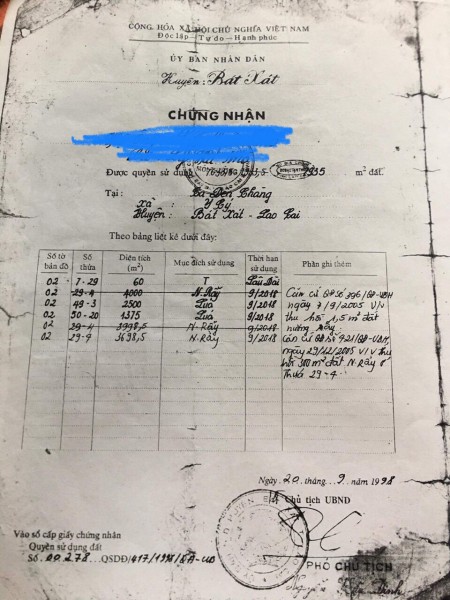 CỘNG HÒA XÃ HỘI CHỦ NGHĨA VIỆT NAM
Độc lập – Tự do – Hạnh phúc
ỦY BAN NHÂN DÂN
Huyện: Bát Xát
CHỨNG NHẬN
Được quyền sử dụng m² đất.
Tại :
Xã : Y Tý
Huyện : Bát Xát - Lào Cai
Theo bảng liệt kê dưới đây:
Số tờ bản đồ Số thửa Diện tích (m²) Mục đích sử dụng Thời hạn sử dụng Phần ghi thêm
02 7-29 60 T Lâu Dài
02 29-4 4000 N.Rẫy 9/2018 Căn cứ QĐ số 396/QĐ-UBH
02 49-3 2500 Lúa 9/2018 ngày 7/9/2005 V/V
02 50-20 1375 Lúa 9/2018 thu hồi 1,5 m² đất
02 29-4 3998,5 N.Rẫy 9/2018 nương Rẫy.
02 29-4 3698,5 N.Rẫy 9/2018 Căn cứ QĐ số 421/QĐ-UBH,
ngày 29/12/2005 V/V thu
hồi 300 m² đất N.Rẫy ở
Thửa 29-4.
Ngày 20 tháng 9 năm 1998
Chủ tịch UBND
Vào sổ cấp giấy chứng nhận
Quyền sử dụng đất
Số 00278 QSDĐ/417/1998/QĐ-UB
PHÓ CHỦ TỊCH
Nguyễn